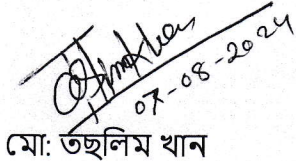 07-08-2024
মো: তছলিম খান